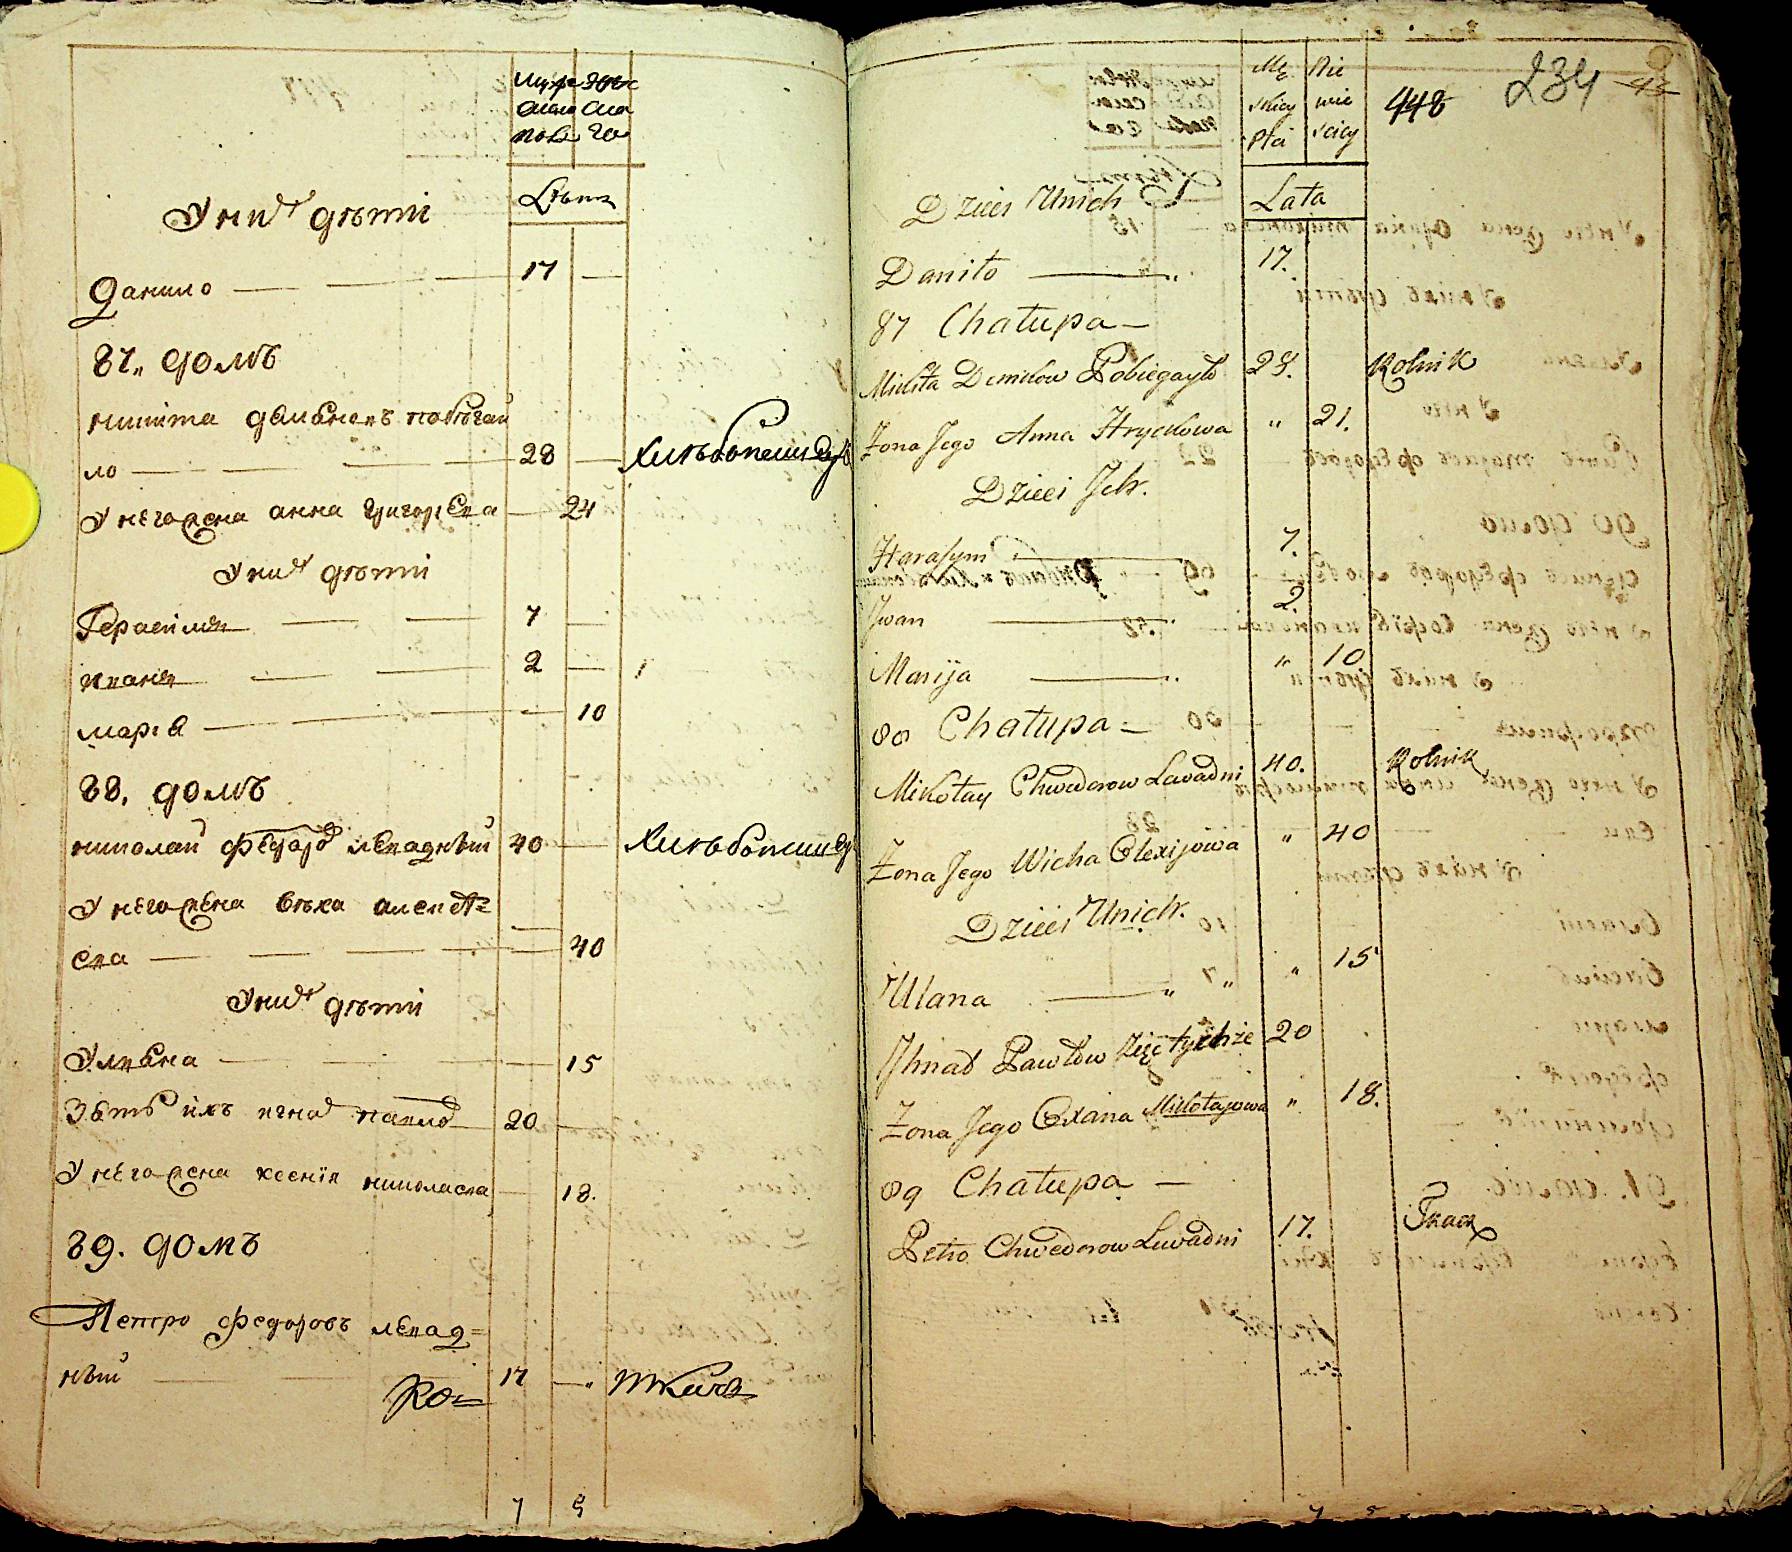 Муже Жен
ска ска
пола го
Лѣта
У них дѣти
Данило — — — 17 —
87„ домъ
никита демьяновъ побѣгай
ло — — — 28 — Хлѣбопашецъ
У него жена анна григорьева — 24
У них дѣти
Герасимъ — — 7 —
иванъ — — 2 —
марія — — — 10
88. домъ
николай федоров левадный 40 — Хлѣбопашецъ
У него жена вѣха алексѣ=
ева — — — 40
У них дѣти
Ульяна — — — 15
Зять ихъ игнат павлов 20 —
У него жена ксенія николаева — 18.
89. домъ
Петро федоровъ левад=
ный — — 17 —„ ткачъ
7 5
234
448
Mę Nie
skiey wie
płci sciey
Lata
Dzieci Unich
Daniło — „ 17.
87 Chałupa —
Mikita Demidow Pobiegayło 28. Rolnik
Żona Jego Anna Hryckowa „ 21.
Dzieci Ich.
Harasym — 7.
Iwan — „ 2.
Marija — „ „ 10
88 Chałupa —
Mikołay Chwedorow Lewadni 40. Rolnik
Żona Jego Wicha Olexijowa „ 40
Dzieci Unich.
Ulana — „ „ „ 15
Ihnad Pawłow Zięć tychże 20
Żona Jego Oxana Mikołajowa „ 18.
89 Chałupa —
Petro Chwedorow Lewadni 17. Tkacz
7 5